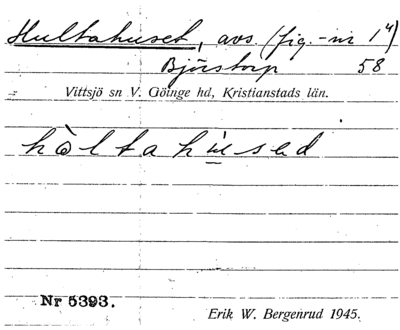 Hultahuset, avs. (fig.-nr 14)
Bjärstorp 58
Vittsjö sn V. Göinge hd, Kristianstads län.
hòltahùsed
Nr 5393.
Erik W. Bergenrud 1945.